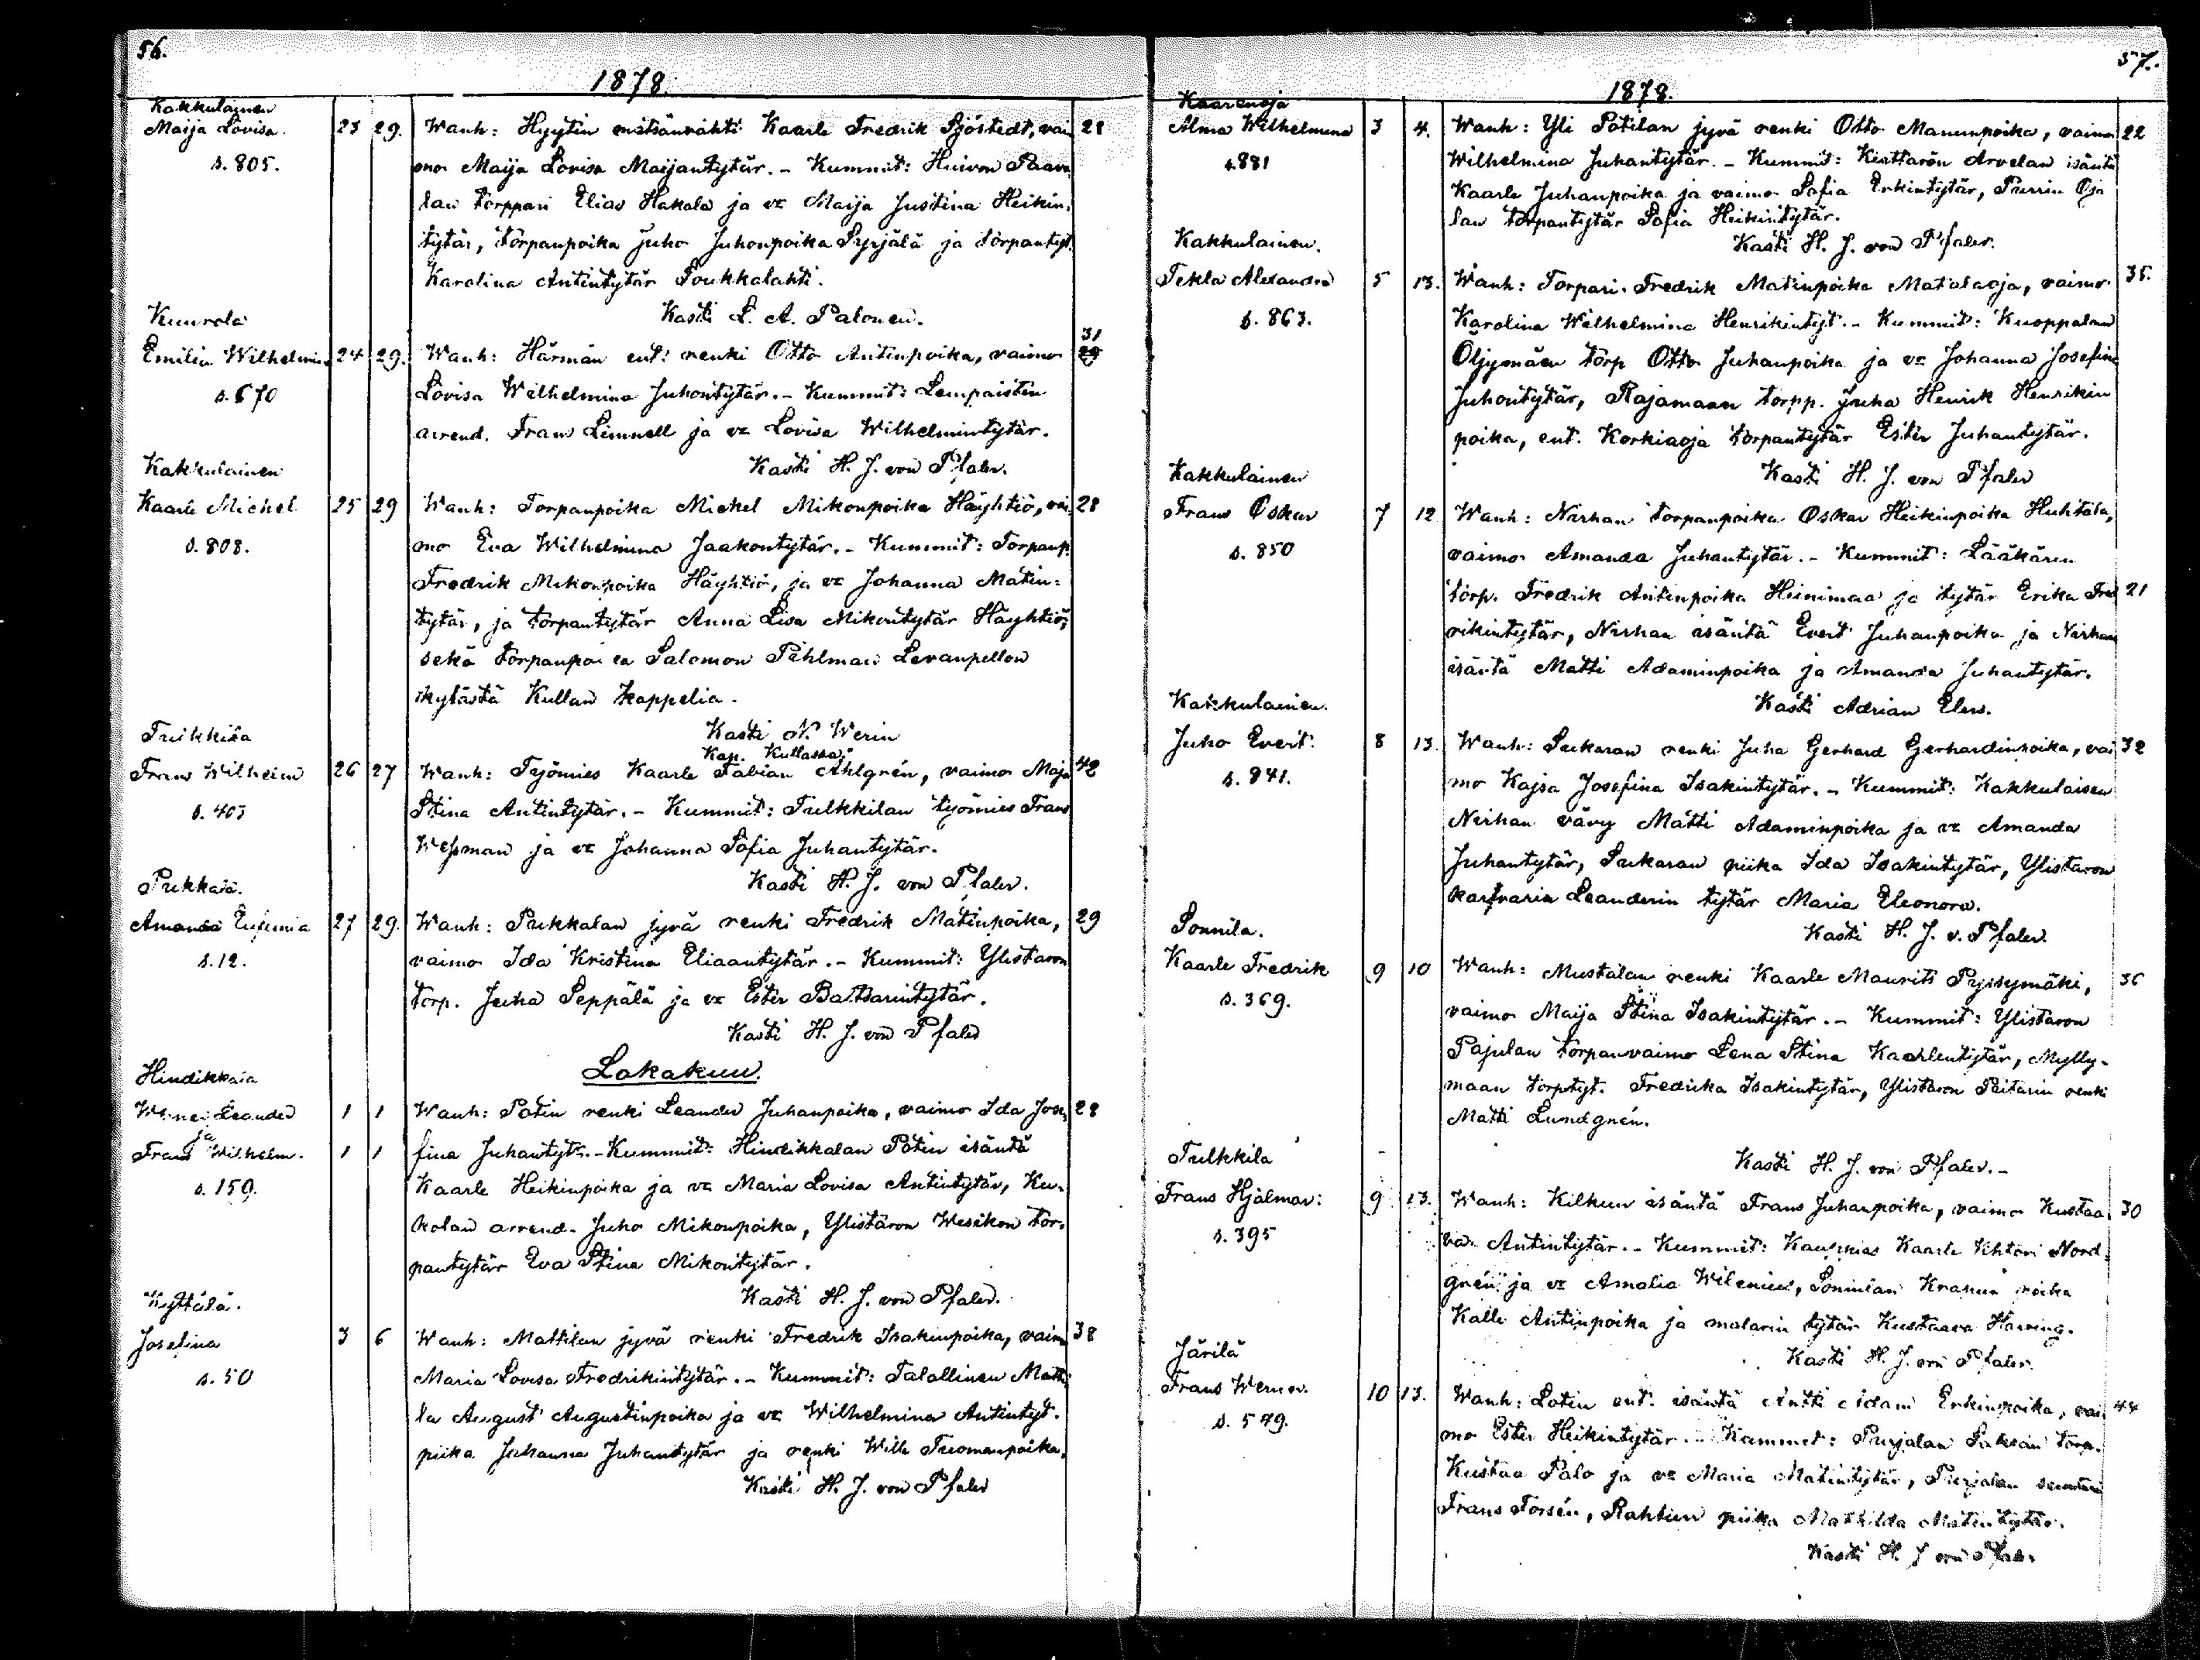 56.
1878.
Kakkulainen
Maija Lovisa. 23 29. Wanh: Hyytin metsänvahti Kaarle Fredrik Sjöstedt, vai 28
s. 805. mo Maija Lovisa Maijantytär. - Kummit: Huivon Paava
lan torppari Elias Hakala ja vo Maija Justina Heikin-
tytär, torpanpoika Juho Juhonpoika Syrjälä ja torpantyt.
Karolina Antintytär Soukkalahti.
Kasti L. A. Palonen.
Kuurola 31
Emilia Wilhelmin 24 29. Wanh: Härmän ent: renki Otto Antinpoika, vaimo
s. 670 Lovisa Wilhelmina Juhontytär. - Kummit: Lempaistin
arrend. Frans Limnell ja vo Lovisa Wilhelmintytär.
Kasti H. J. von Pfaler.
Kakkulainen
Kaarle Michel 25 29 Wanh: Torpanpoika Michel Mikonpoika Häyhtiö, vai 28
s. 808. mo Eva Wilhelmina Jaakontytär. - Kummit: Torpanp.
Fredrik Mikonpoika Häyhtiö, ja vo Johanna Matin-
tytär, ja torpantytär Anna Lisa Mikontytär Häyhtiö,
sekä torpanpoika Salomon Påhlman Levanpellon
kylästä Kullan kappelia.
Kasti N. Werin
Kap. Kullassa.
Tulkkila
Frans Wilhelm 26 27 Wanh: Työmies Kaarle Fabian Ahlgrén, vaimo Maja 42
s. 403 Stina Antintytär. - Kummit: Tulkkilan työmies Frans
Wessman ja vo Johanna Sofia Juhantytär.
Kasti H. J. von Pfaler.
Pukkala.
Amanda Eufemia 27 29. Wanh: Pukkalan jyvä renki Fredrik Matinpoika, 29
s. 12. vaimo Ida Kristina Eliaantytär. - Kummit: Ylistaron
torp. Juha Seppälä ja vo Ester Baltsarintytär.
Kasti H. J. von Pfaler
Lokakuu.
Hindikkala
Werner Leander 1 1 Wanh: Potin renki Leander Juhanpoika, vaimo Ida Jose- 28
ja
Frans Wilhelm. 1 1 fina Juhantyt. - Kummit: Hindikkalan Potin isäntä
s. 159. Kaarle Heikinpoika ja vo Maria Lovisa Antintytär, Ku-
kolan arrend. Juho Mikonpoika, Ylistaron Wesikon tor-
pantytär Eva Stina Mikontytär.
Kasti H. J. von Pfaler.
Kyttälä.
Josefina 3 6 Wanh: Mattilan jyvä renki Fredrik Isakinpoika, vaim 38
s. 50 Maria Lovisa Fredrikintytär. - Kummit: Talollinen Matti
la August Augustinpoika ja vo Wilhelmina Antintyt.
piika Juhanna Juhantytär ja renki Wille Tuomanpoika.
Kasti H. J. von Pfaler
57.
1878.
Kaarenoja
Alma Wilhelmina 3 4. Wanh: Yli Potilan jyvä renki Otto Manunpoika, vaimo 22
s. 881 Wilhelmina Juhantytär. - Kummit: Kiettarön Arvelan isäntä
Kaarle Juhanpoika ja vaimo Sofia Erkintytär, Purrin Oja
lan torpantytär Sofia Heikintytär.
Kasti H. J. von Pfaler.
Kakkulainen.
Tekla Alexandra 5 13. Wanh: Torpari Fredrik Matinpoika Matalaoja, vaimo 35.
s. 863. Karolina Wilhelmina Henrikintyt. - Kummit: Kuoppalan
Öljymäen torp Otto Juhanpoika ja vo Johanna Josefina
Juhontytär, Rajamaan torpp. Juha Henrik Henrikin
poika, ent. Korkiaoja torpantytär Ester Juhantytär.
Kasti H. J. von Pfaler
Kakkulainen
Frans Oskar 7 12 Wanh: Nirhan torpanpoika Oskar Heikinpoika Huhtala,
s. 850 vaimo Amanda Juhantytär. - Kummit: Lääkärin
torp. Fredrik Antinpoika Heinimaa ja tytär Erika Fred 21
rikintytär, Nirhan isäntä Evert Juhanpoika ja Nirhan
isäntä Matti Adaminpoika ja Amanda Juhantytär.
Kasti Adrian Elers.
Kakkulainen.
Juho Evert. 8 13. Wanh: Sukaran renki Juha Gerhard Gerhardinpoika, vai 32
s. 841. mo Kajsa Josefina Isakintytär. - Kummit: Kakkulaisen
Nirhan vävy Matti Adaminpoika ja vo Amanda
Juhantytär, Sukaran piika Ida Isakintytär, Ylistaron
karfvaria Leanderin tytär Maria Eleonora.
Kasti H. J. v. Pfaler.
Sonnila.
Kaarle Fredrik 9 10 Wanh: Mustalan renki Kaarle Maurits Pyssymäki, 36
s. 369. vaimo Maija Stina Isakintytär. - Kummit: Ylistaron
Pajulan torpanvaimo Lena Stina Kaarlentytär, Mylly-
maan torptyt. Fredrika Isakintytär, Ylistaron Peitarin renki
Matti Lundgrén.
Kasti H. J. von Pfaler. -
Tulkkila
Frans Hjalmar: 9 13. Wanh: Kilkun isäntä Frans Juhanpoika, vaimo Kustaa- 30
s. 395 va Antintytär. - Kummit: Kauppias Kaarle Vihtori Nord-
grén ja vo Amalia Wilenius, Sonnilan Krannin poika
Kalle Antinpoika ja malarin tytär Kustaava Having.
Kasti H. J. von Pfaler.
Järilä
Frans Werner. 10 13. Wanh: Lotin ent. isäntä Antti Adam Erkinpoika, vai- 44
s. 549. mo Ester Heikintytär. - Kummit: Purjalan Saksan torp.
Kustaa Palo ja vo Maria Matintytär, Purjalan
Frans Forsén, Rahtun piika Mathilda Matintytär.
Kasti H. J von Pfaler